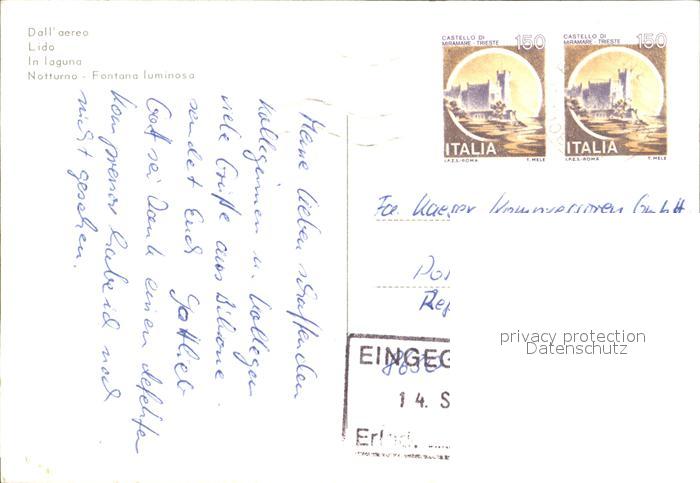 Dall'aereo
Lido
In laguna
Notturno - Fontana luminosa
CASTELLO DI
MIRAMARE - TRIESTE 150
ITALIA
I.P.Z.S. - ROMA T. MELE
CASTELLO DI
MIRAMARE - TRIESTE 150
ITALIA
I.P.Z.S. - ROMA T. MELE
Meine lieben schaffenden
Kolleginnen u. Kollegen
viele Grüße aus Bibione
sendet Euch Gottlieb
Gott sei Dank einen defekten
Kompressor habe ich noch
nicht gesehen.
Fa. Kaeser Kompressoren GmbH
EINGEG
8630
14. S
Erled.
privacy protection
Datenschutz